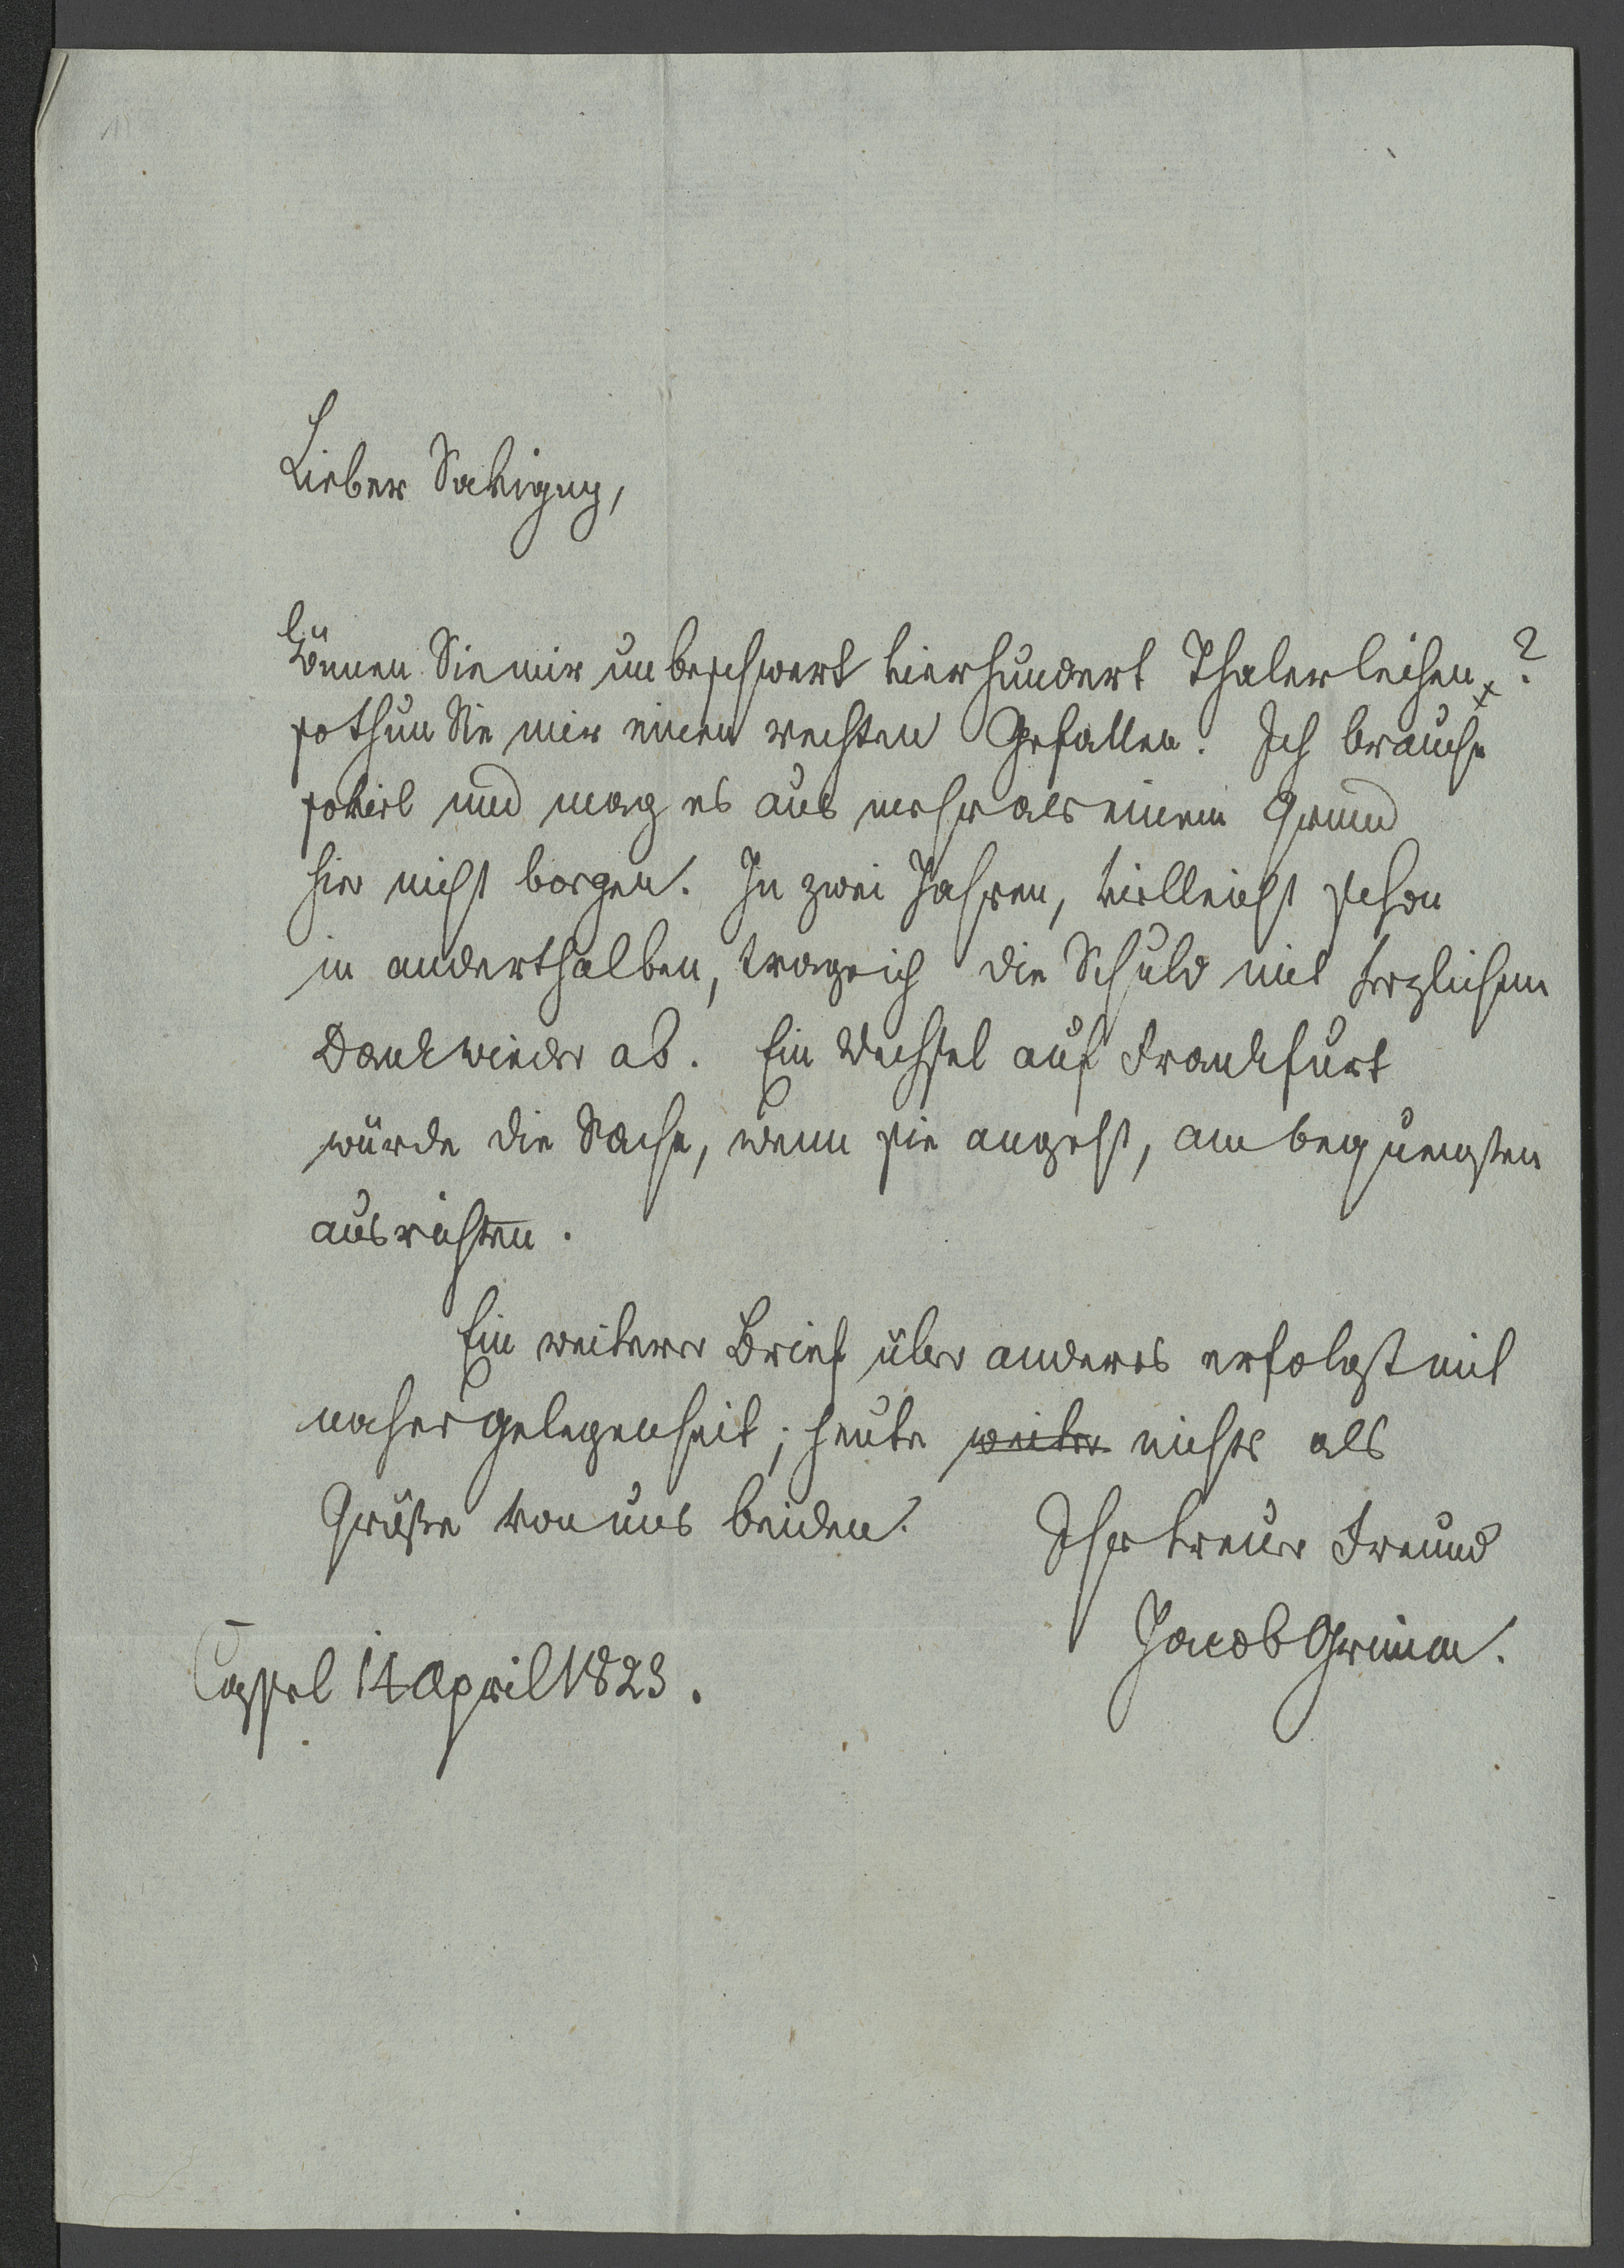 Lieber Savigny,
können Sie mir unbeschwert vierhundert Thaler leihen?
so thun Sie mir einen rechten Gefallen. Ich brauche
soviel und mag es aus mehr als einem Grund
hier nicht borgen. In zwei Jahren, vielleicht schon
in anderthalben, trage ich die Schuld mit herzlichem
Dank wieder ab. Ein Wechsel auf Frankfurt
würde die Sache, wenn sie angeht, am bequemsten
ausrichten.
Ein weiterer Brief über anderes erfolgt mit
naher Gelegenheit; heute weiter nichts als
Grüße von uns beiden. Ihr treuer Freund
Jacob Grimm.
Cassel 14 April 1823.